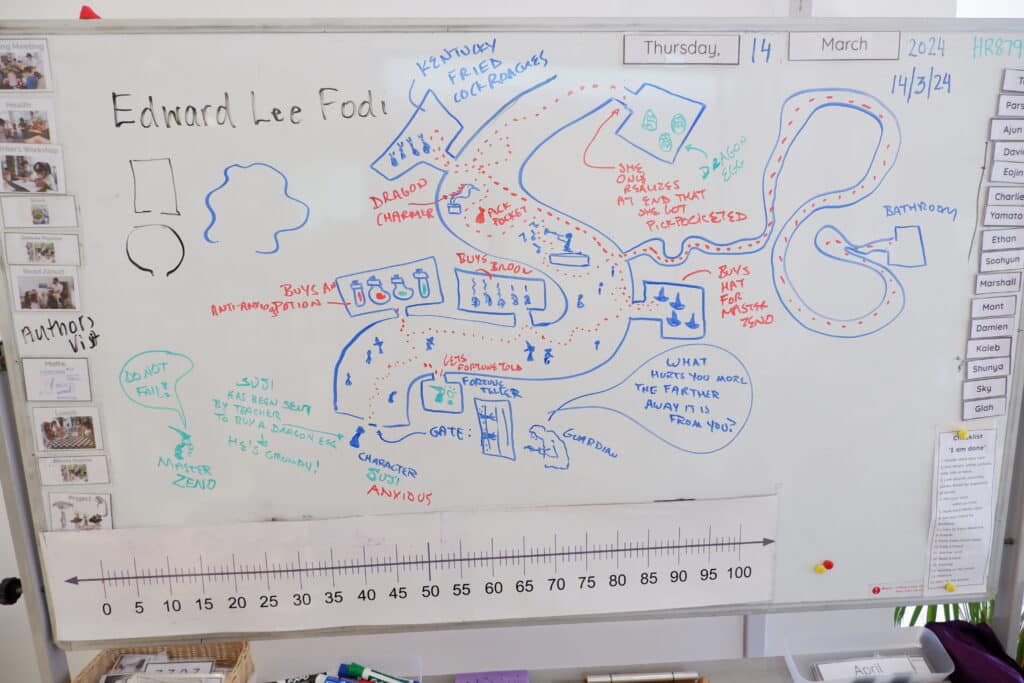 Thursday,
14
March
2024
HR879
14/3/24
Edward Lee Fodi
KENTUCKY
FRIED
COCKROACHES
DRAGON
CHARMER
PICK
POCKET
SHE
ONLY
REALIZES
AT END THAT
SHE GOT
PICKPOCKETED
DRAGON
EGG
BATHROOM
BUYS AN
ANTI-ANXIOUS POTION
BUYS BROOM
BUYS
HAT
FOR
MASTER
ZENO
GETS
FORTUNE TOLD
FORTUNE
TELLER
GATE:
GUARDIAN
WHAT
HURTS YOU MORE
THE FARTHER
AWAY IT IS
FROM YOU?
DO NOT
FAIL!
MASTER
ZENO
SUJI
HAS BEEN SENT
BY TEACHER
TO BUY A DRAGON EGG
HE'S GRUMPY!
CHARACTER
SUJI
ANXIOUS
ng Meeting
Health
Read Aloud
Authors
Visit
Maths
Lunch
Project
Pars
Ajun
Davi
Eojin
Charlie
Yamato
Ethan
Soohyun
Marshall
Mont
Damien
Kaleb
Shunya
Sky
Giah
Checklist
"I am done"
0 5 10 15 20 25 30 35 40 45 50 55 60 65 70 75 80 85 90 95 100
April